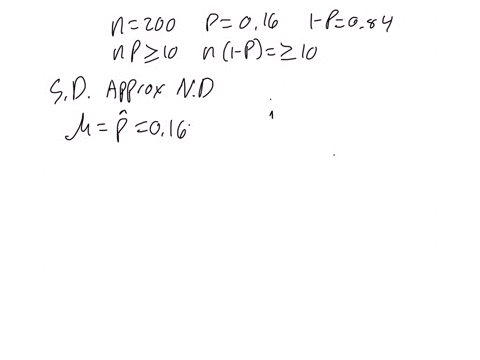 n=200 P=0.16 1-P=0.84
nP≥10 n(1-P)=≥10
S.D. Approx N.D
μ=p̂=0.16